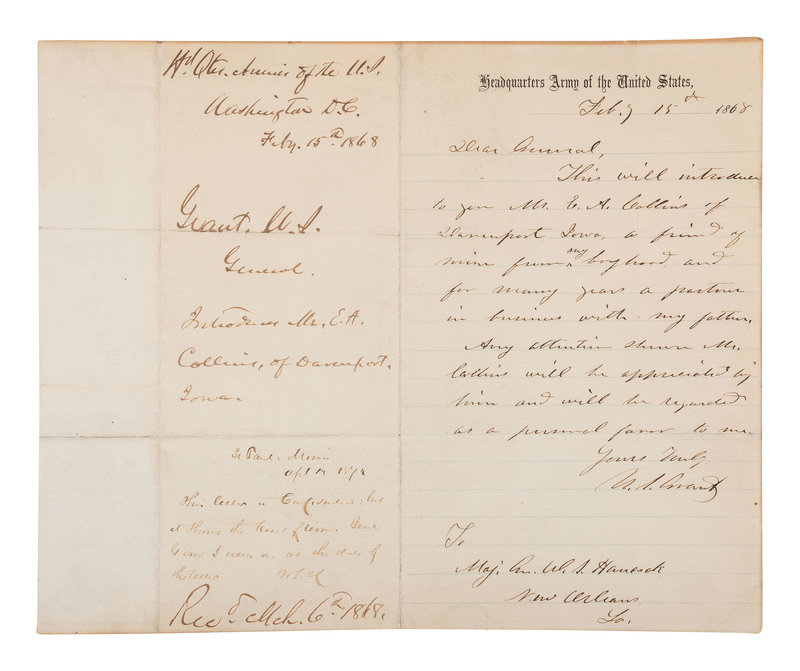 Hd Qtrs. Armies of the U.S.
Washington D.C.
Feby. 15th 1868
Grant. U.S.
General.
Introduces Mr. E.A.
Collins, of Davenport,
Iowa.
St Paul. Minn
Apl 1872
This letter is
it shows the terms
I were on at the date of
the letter. W.S.H.
Recd. Mch. 6th 1868.
Headquarters Army of the United States,
Feby 15th 1868
Dear General,
This will introduce
to you Mr. E. A. Collins of
Davenport Iowa, a friend of
mine from my boyhood and
for many years a partner
in business with my father.
Any attention shown Mr.
Collins will be appreciated by
him and will be regarded
as a personal favor to me
Yours Truly
U. S. Grant
To
Maj. Gn. W. S. Hancock
New Orleans
La.